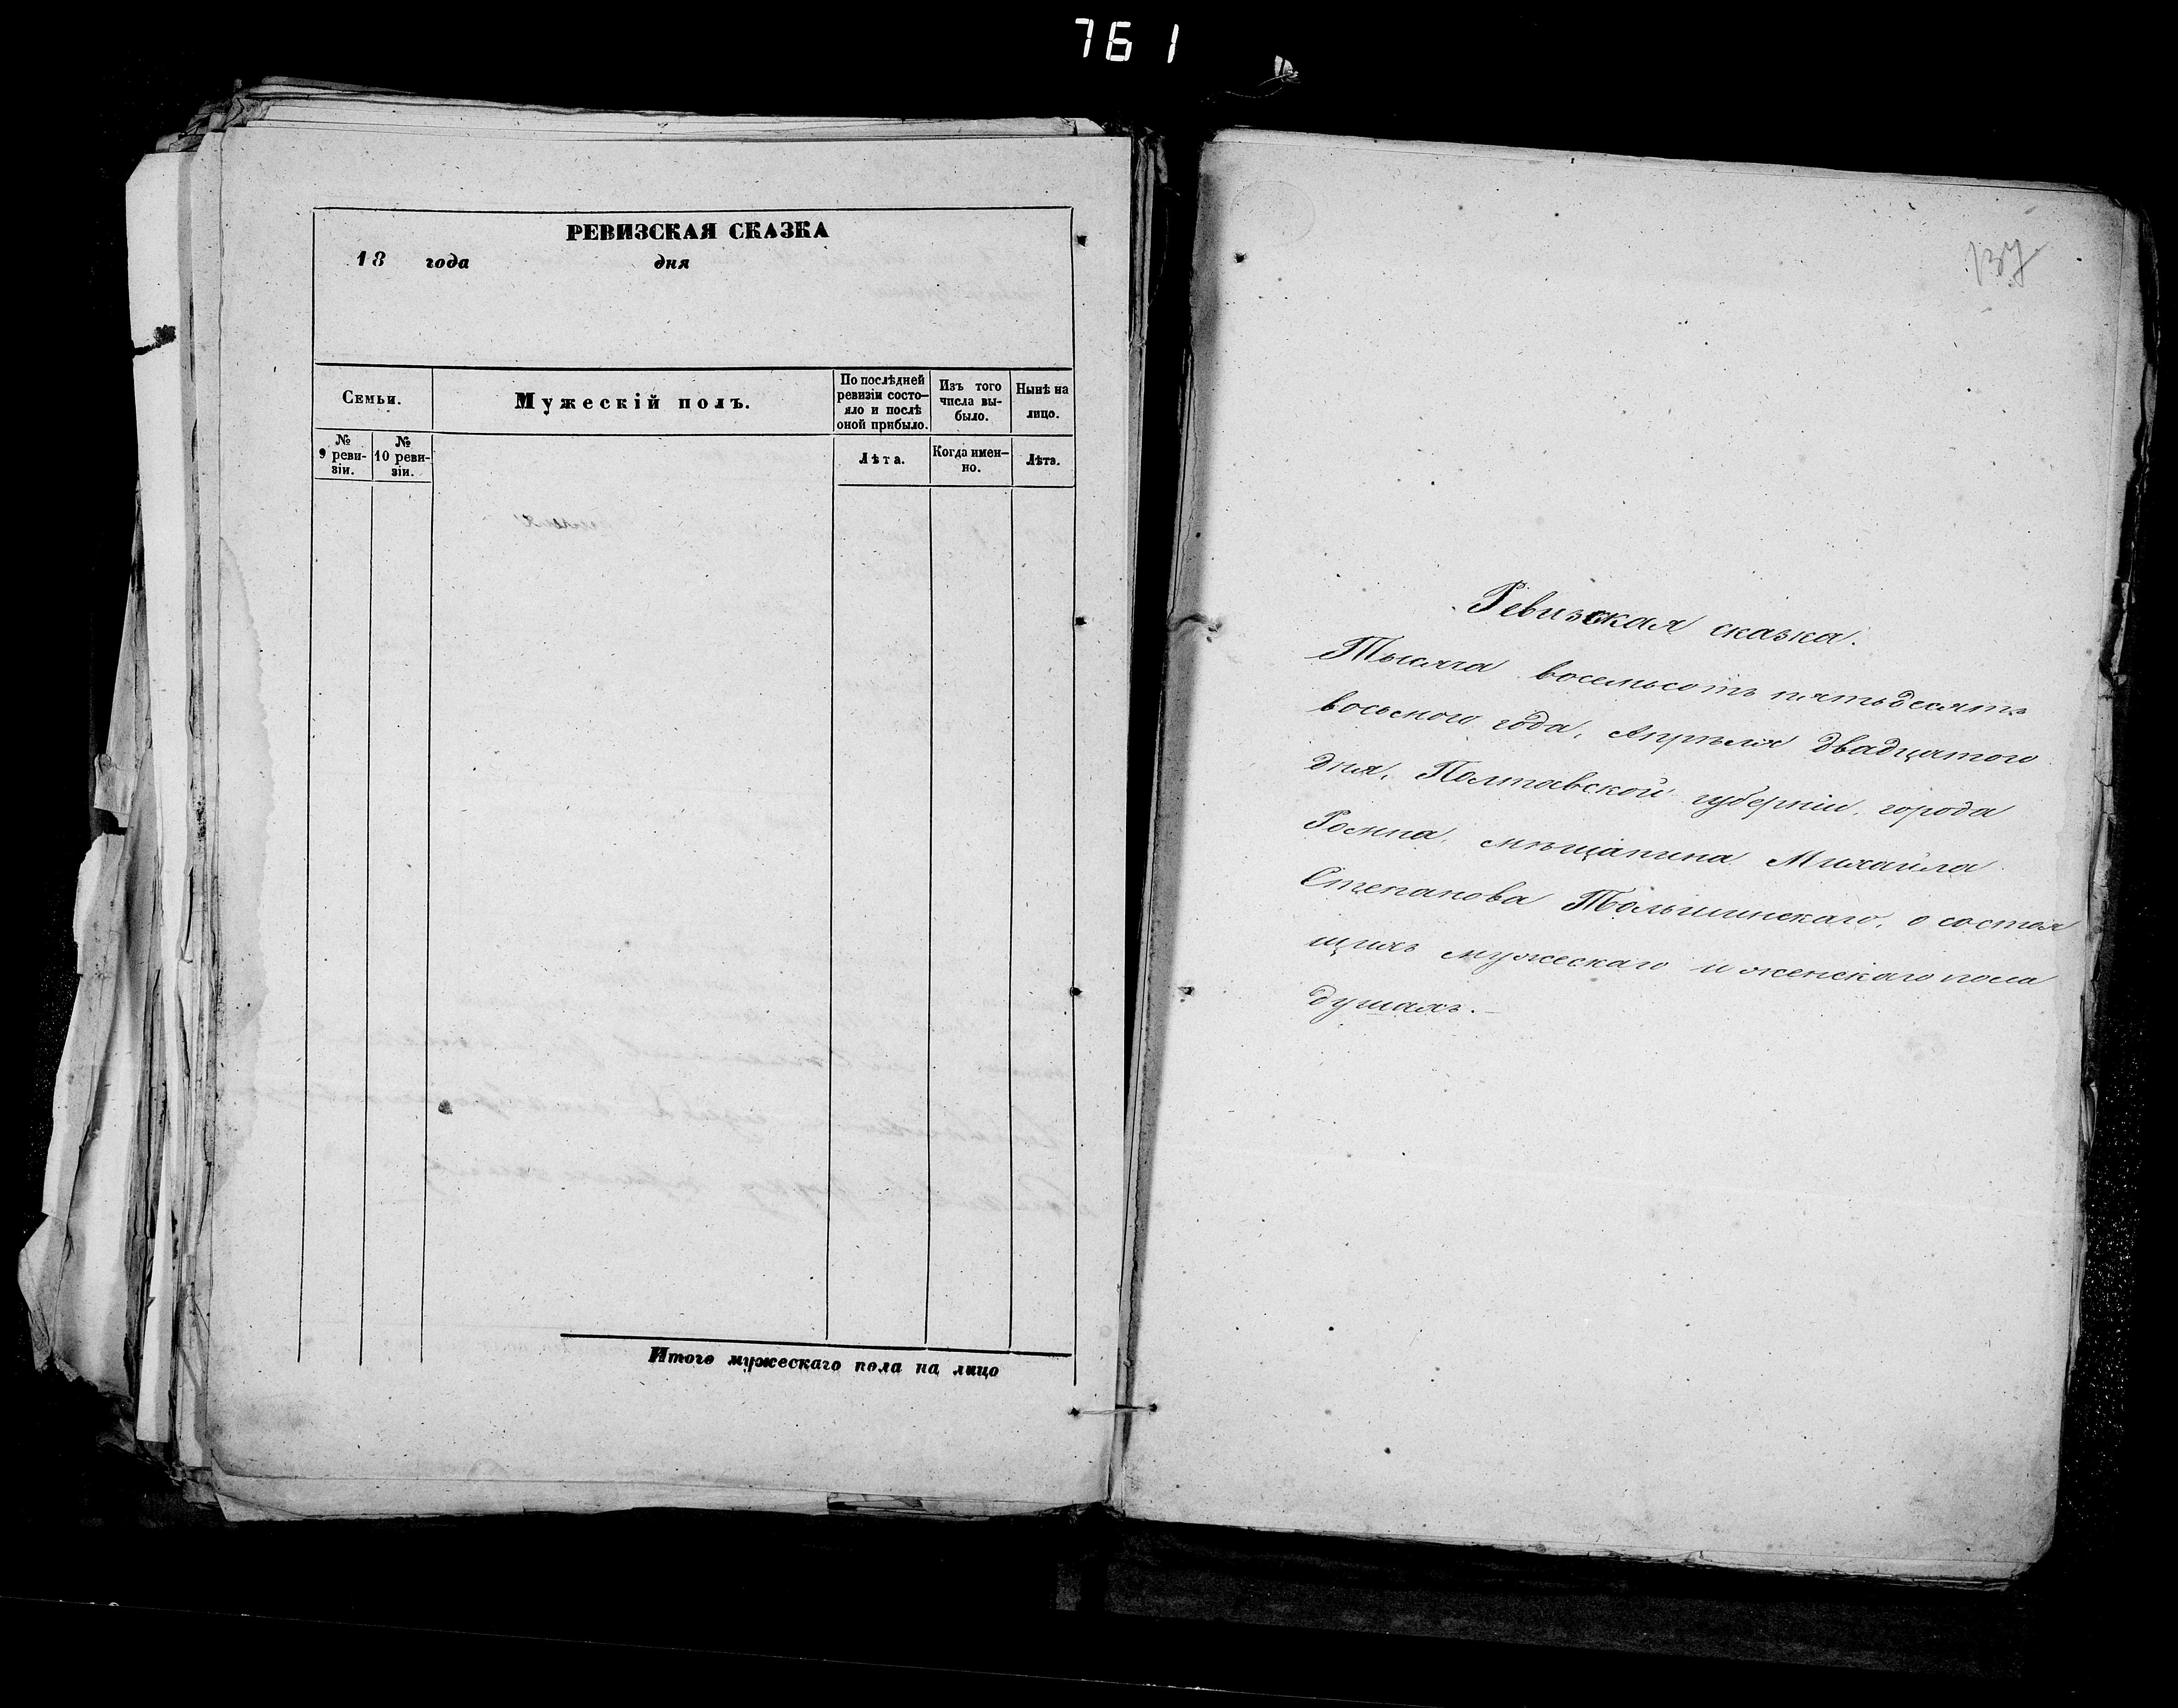 761
РЕВИЗСКАЯ СКАЗКА
18 года дня
Семьи.
Мужескій полъ.
По послѣдней ревизіи состо-яло и послѣ оной прибыло.
Изъ того числа вы-было.
Нынѣ на лицо.
№ 9 реви-зіи.
№ 10 реви-зіи.
Лѣта.
Когда имен-но.
Лѣта.
Итого мужескаго пола на лицо
137
Ревизская сказка.
Тысяча восемьсотъ пятьдесятъ
восьмого года, Апрѣля двадцатого
дня, Полтавской губерніи, города
Ромна, мѣщанина Михайла
Степанова Тольшинскаго, о состоя
щихъ мужескаго и женскаго пола
душахъ.–